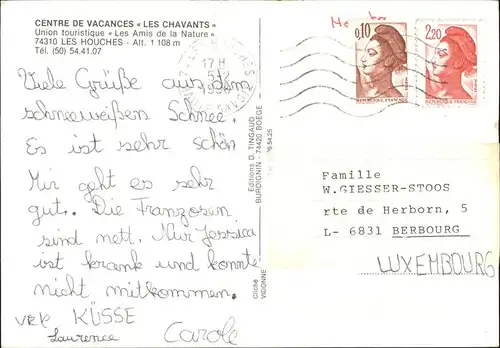 CENTRE DE VACANCES « LES CHAVANTS »
Union touristique « Les Amis de la Nature »
74310 LES HOUCHES - Alt. 1 108 m
Tél. (50) 54.41.07
Viele Grüße aus dem
schneeweißen Schnee.
Es ist sehr schön
Mir geht es sehr
gut. Die Franzosen
sind nett. Nur Jessica
ist krank und konnte
nicht mitkommen.
KÜSSE
Laurence
Carole
Editions D. TINGAUD
BURDIGNIN - 74420 BOEGE
Cliché
VIDONNE
17 H
0,10
2,20
Famille
W.GIESSER-STOOS
rte de Herborn, 5
L- 6831 BERBOURG
LUXEMBOURG